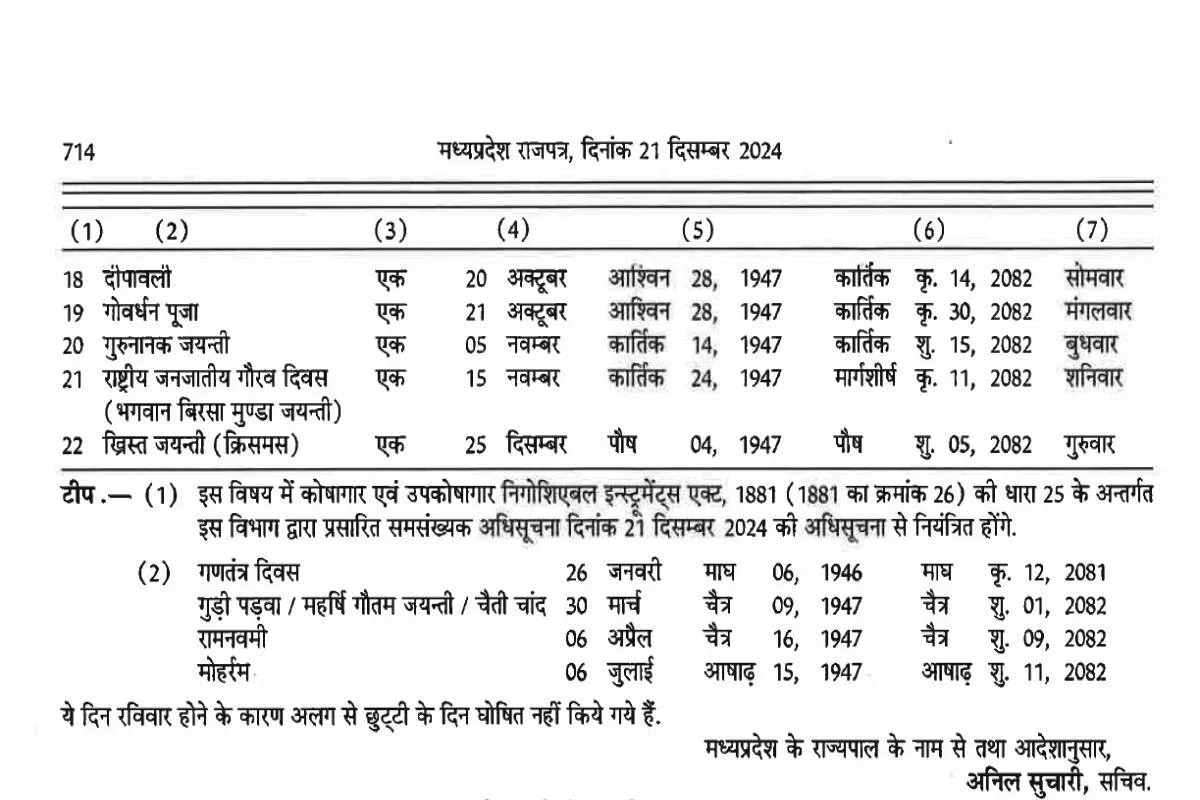 714 मध्यप्रदेश राजपत्र, दिनांक 21 दिसम्बर 2024
(1) (2) (3) (4) (5) (6) (7)
18 दीपावली एक 20 अक्टूबर आश्विन 28, 1947 कार्तिक कृ. 14, 2082 सोमवार
19 गोवर्धन पूजा एक 21 अक्टूबर आश्विन 28, 1947 कार्तिक कृ. 30, 2082 मंगलवार
20 गुरुनानक जयन्ती एक 05 नवम्बर कार्तिक 14, 1947 कार्तिक शु. 15, 2082 बुधवार
21 राष्ट्रीय जनजातीय गौरव दिवस एक 15 नवम्बर कार्तिक 24, 1947 मार्गशीर्ष कृ. 11, 2082 शनिवार
(भगवान बिरसा मुण्डा जयन्ती)
22 ख्रिस्त जयन्ती (क्रिसमस) एक 25 दिसम्बर पौष 04, 1947 पौष शु. 05, 2082 गुरुवार
टीप.— (1) इस विषय में कोषागार एवं उपकोषागार निगोशिएबल इन्स्ट्रूमेंट्स एक्ट, 1881 (1881 का क्रमांक 26) की धारा 25 के अन्तर्गत
इस विभाग द्वारा प्रसारित समसंख्यक अधिसूचना दिनांक 21 दिसम्बर 2024 की अधिसूचना से नियंत्रित होंगे.
(2) गणतंत्र दिवस 26 जनवरी माघ 06, 1946 माघ कृ. 12, 2081
गुड़ी पड़वा / महर्षि गौतम जयन्ती / चैती चांद 30 मार्च चैत्र 09, 1947 चैत्र शु. 01, 2082
रामनवमी 06 अप्रैल चैत्र 16, 1947 चैत्र शु. 09, 2082
मोहर्रम 06 जुलाई आषाढ़ 15, 1947 आषाढ़ शु. 11, 2082
ये दिन रविवार होने के कारण अलग से छुट्टी के दिन घोषित नहीं किये गये हैं.
मध्यप्रदेश के राज्यपाल के नाम से तथा आदेशानुसार,
अनिल सुचारी, सचिव.